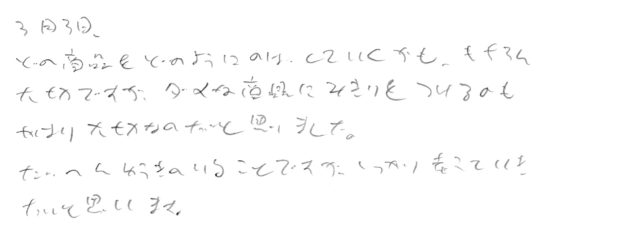 3月3日、
どの商品をどのようにのばしていくかも、もちろん
大切ですが、ダメな商品にみきりをつけるのも
かなり大切なのだと思いました。
たいへんゆうきのいることですが、しっかり をこていき
たいと思います。